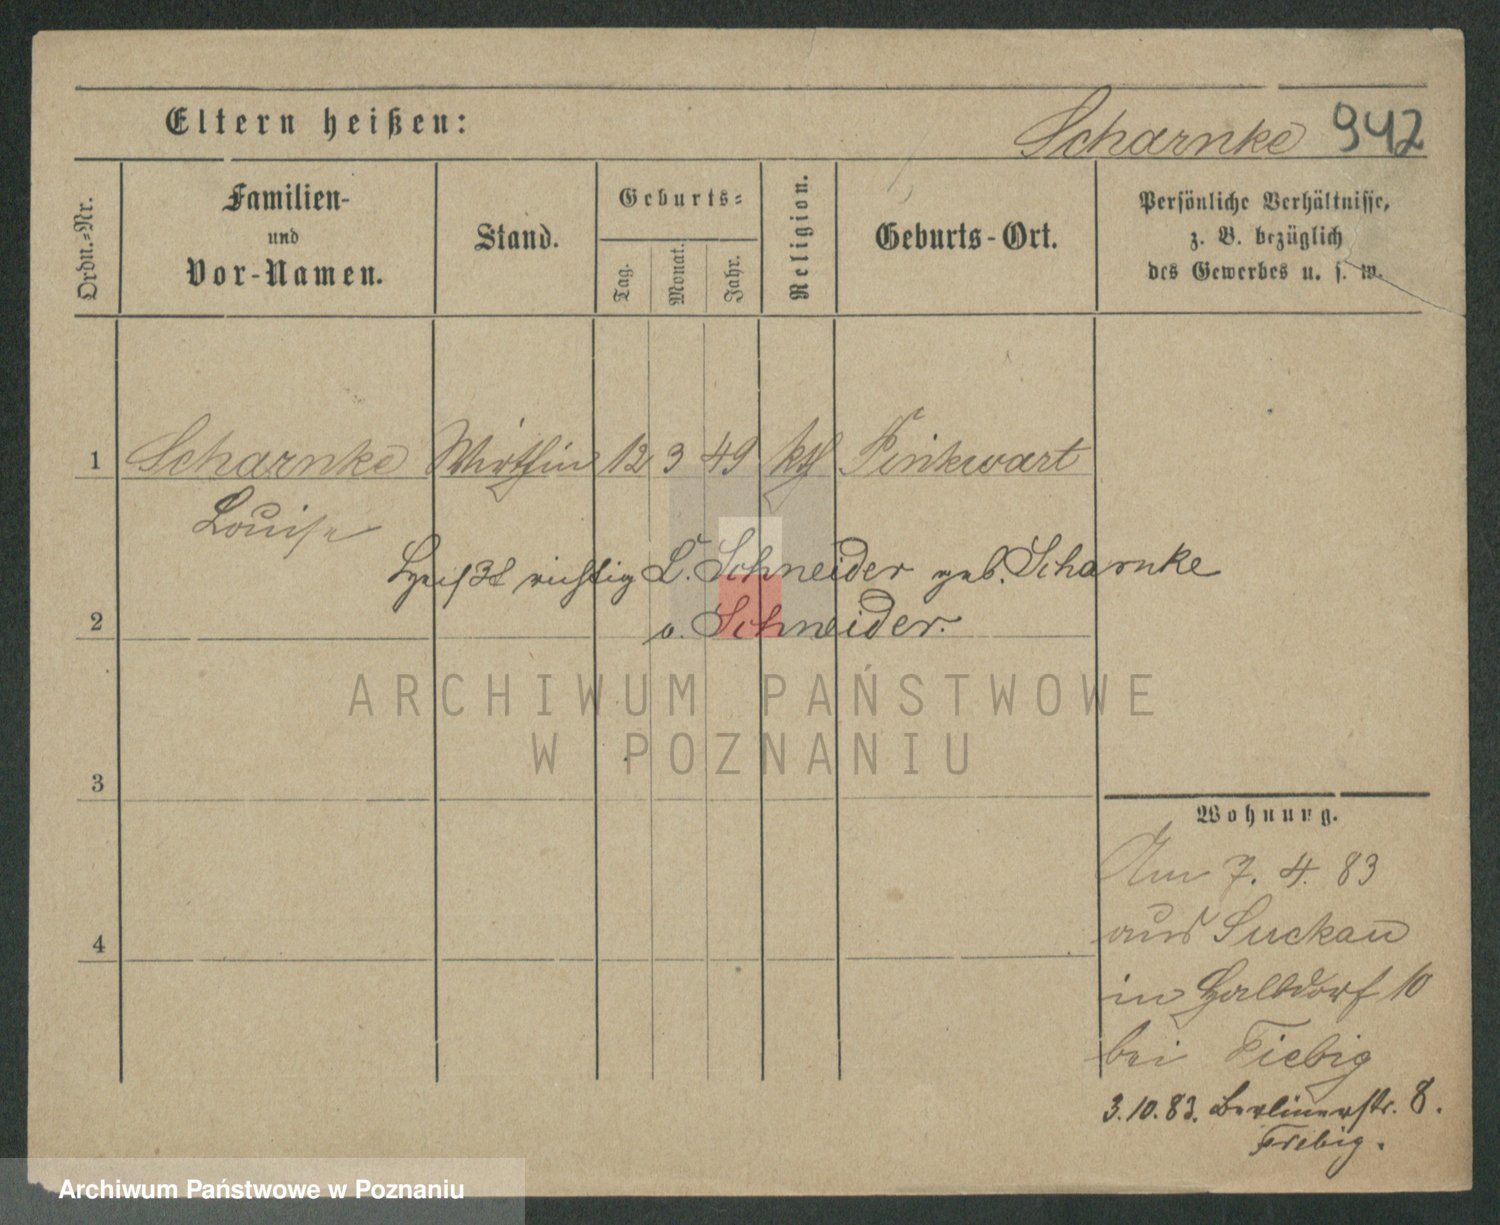 Eltern heißen:
Scharnke 942
Ordn.-Nr.
Familien-
und
Vor-Namen.
Stand.
Geburts-
Tag.
Monat.
Jahr.
Religion.
Geburts-Ort.
Persönliche Verhältnisse,
z. B. bezüglich
des Gewerbes u. s. w.
1 Scharnke Wirthin 12 3 49 kth Finkwart
Louise
Heißt richtig L. Schneider geb. Scharnke
v. Schneider.
2
ARCHIWUM PAŃSTWOWE
W POZNANIU
3
4
Wohnung.
Am 7. 4. 83
aus Suckau
in Halbdorf 10
bei Fiebig
3.10.83. Berlinerstr. 8.
Fiebig.
Archiwum Państwowe w Poznaniu